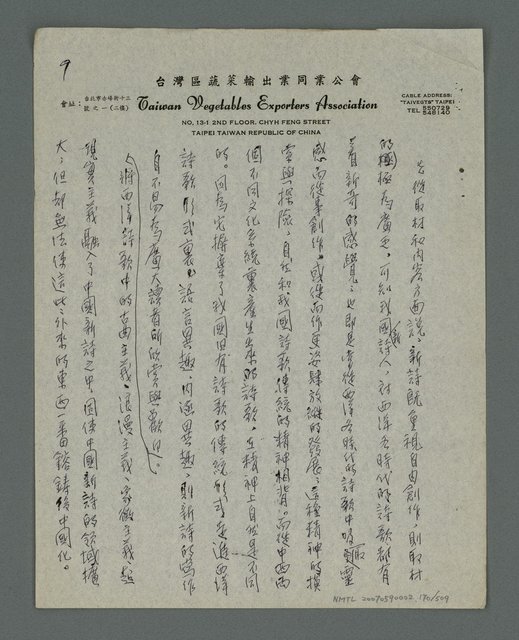 9
台灣區蔬菜輸出業同業公會
會址：台北市赤峰街十三號之一（二樓）
Taiwan Vegetables Exporters Association
CABLE ADDRESS:
"TAIVEGTS" TAIPEI
TEL 550729
548140
NO. 13-1 2ND FLOOR. CHYH FENG STREET
TAIPEI TAIWAN REPUBLIC OF CHINA
從取材和內容方面說，新詩既重視自由創作，則取材
的極為廣泛，可知我國新詩人，對西洋各時代的詩歌都有
著新奇的感覺；也即是常從西洋各時代的詩歌中吸取靈
感而從事創作。或從而作更姿肆放縱的發展，這種精神的摸
索與探險，自然和我國詩歌傳統的精神相背。而從中西兩
個不同文化系統裏產生出來的詩歌，在精神上自然是不同
的。因為它摒棄了我國旧有詩歌的傳統形式走進西洋
詩歌形式裏，語言異趣，內涵異趣，則新詩的寫作
自不易為廣大讀者所欣賞與歡迎。
將西洋詩歌中的古典主義、浪漫主義、象徵主義、超
現實主義融入了中國新詩之中，固使中國新詩的領域擴
大，但却無法使這些外來的東西一番鎔鑄後中國化。
NMTL 20070590002 170/509